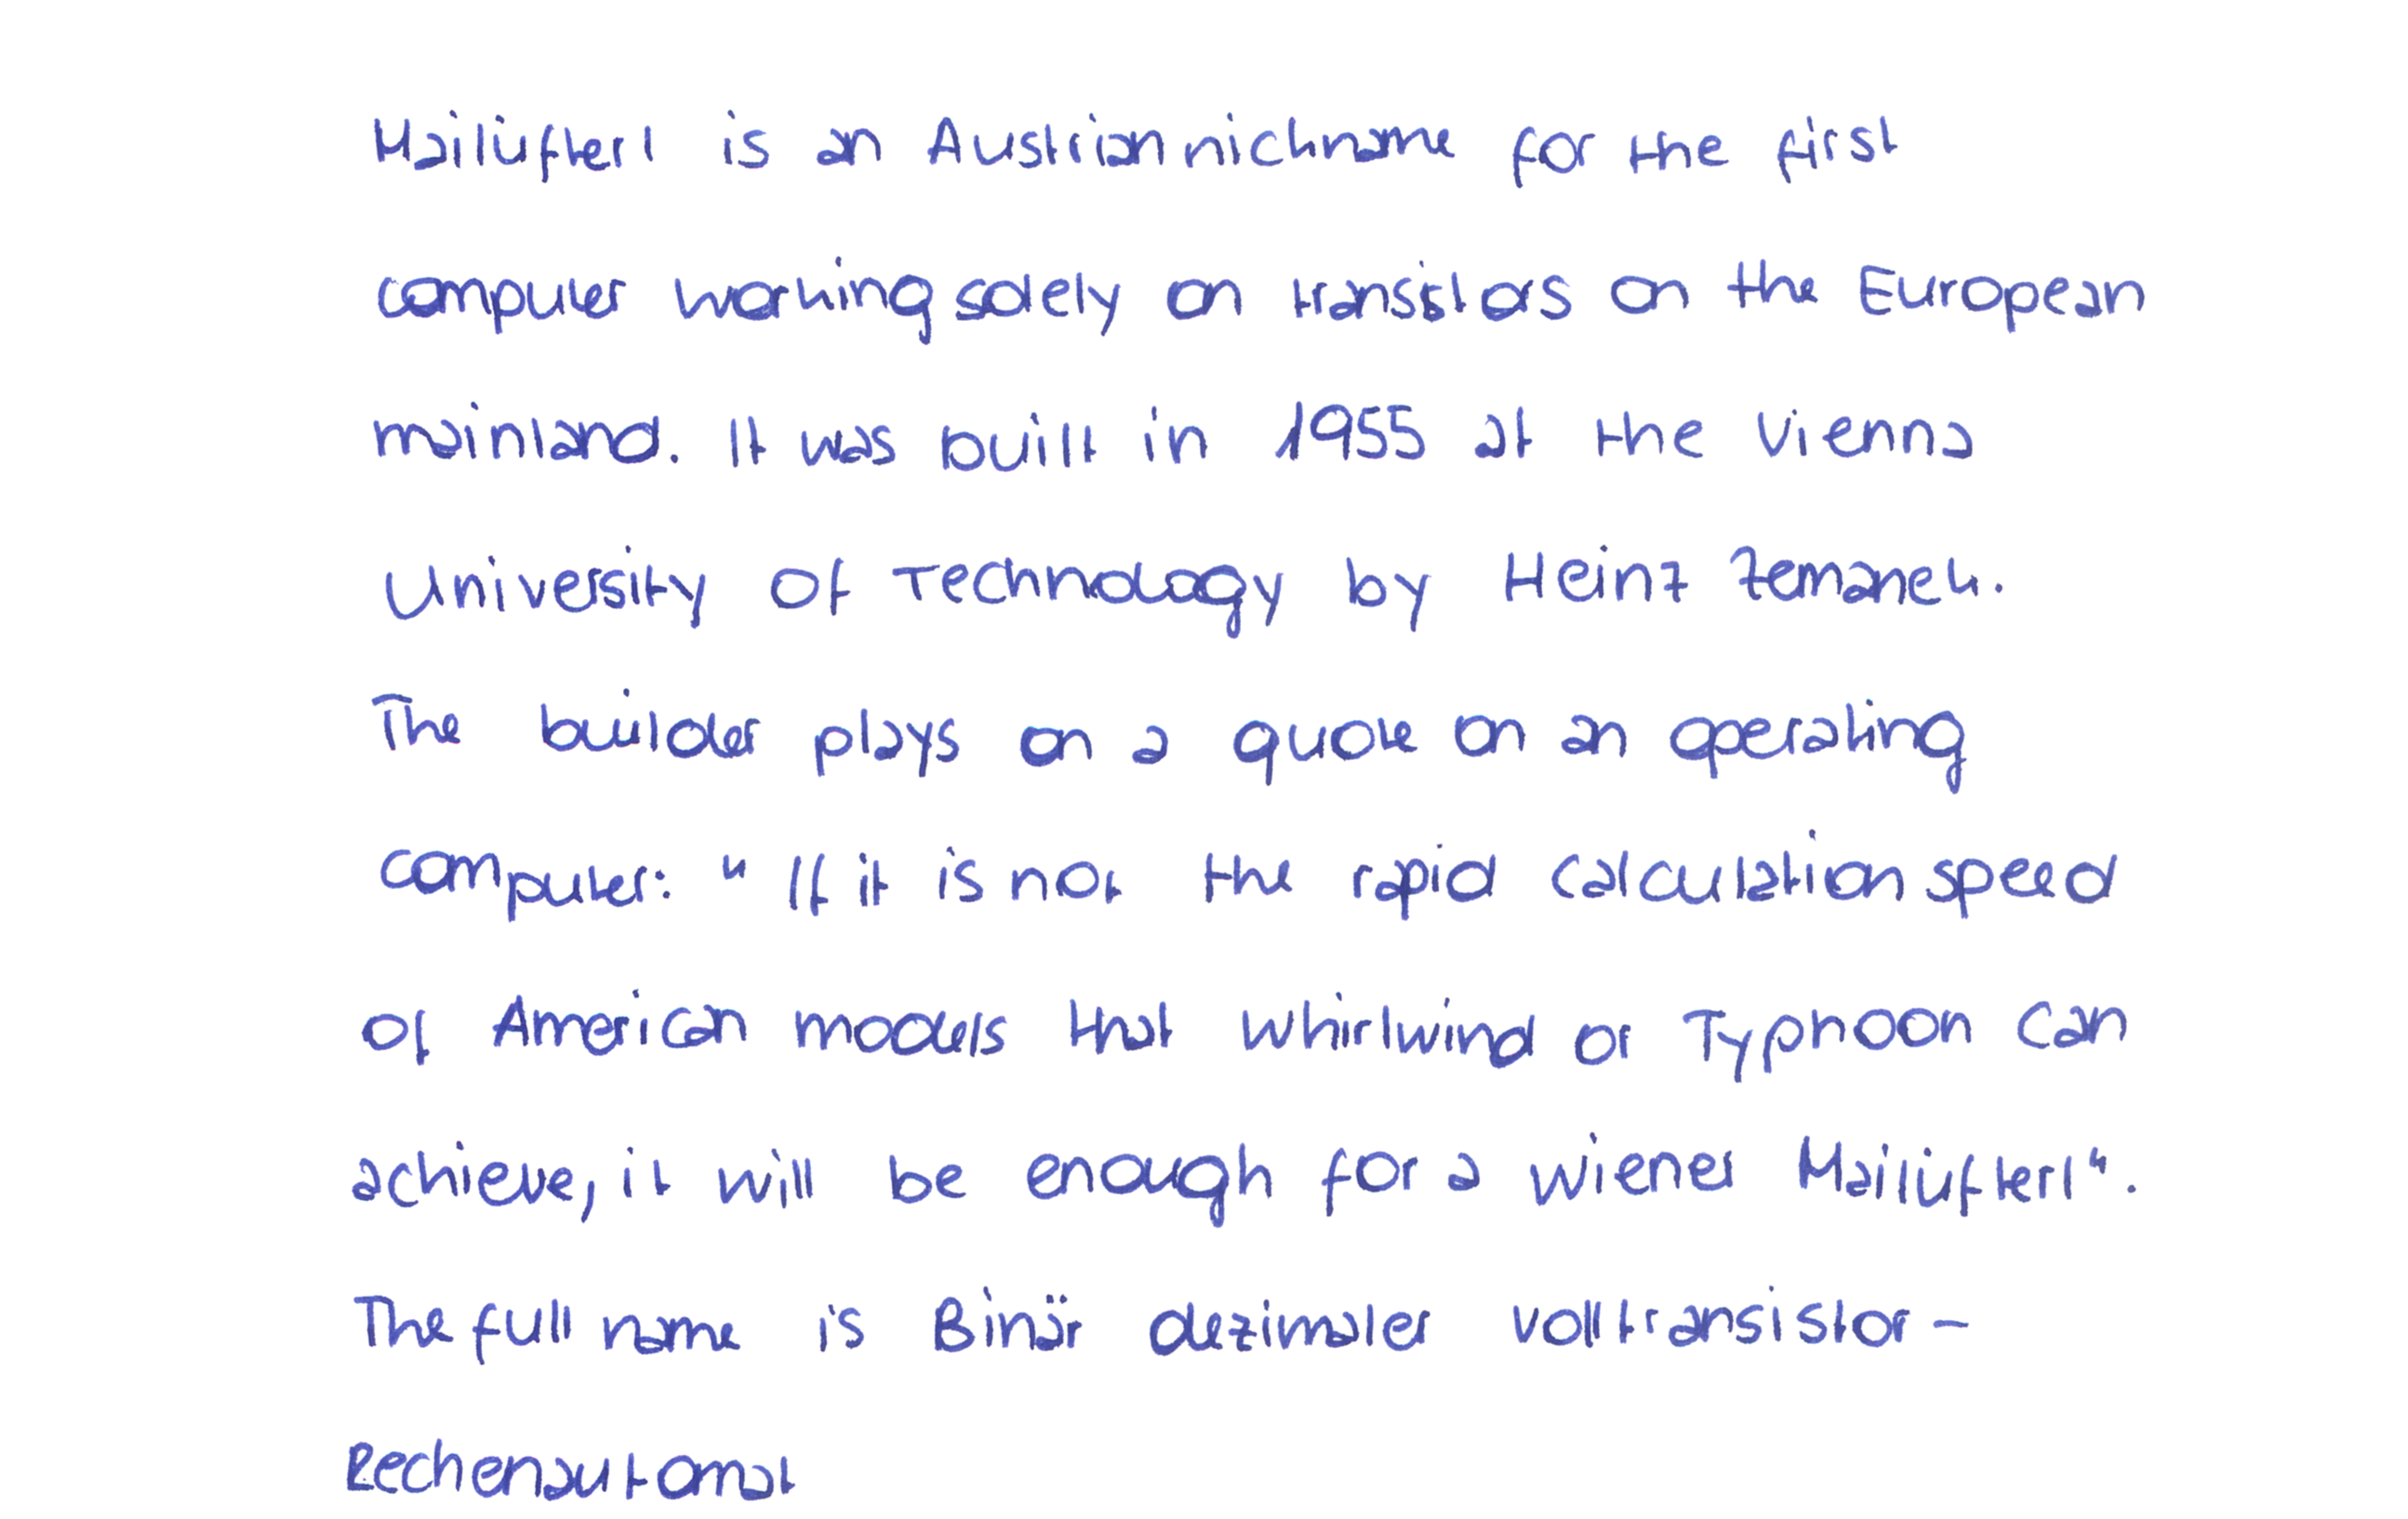 Mailüfterl is an Austrian nickname for the first
computer working solely on transistors on the European
mainland. It was built in 1955 at the Vienna
University of Technology by Heinz Zemanek.
The builder plays on a quote on an operating
computer: " If it is not the rapid calculation speed
of American models that Whirlwind or Typhoon can
achieve, it will be enough for a Wiener Mailüfterl".
The full name is Binär dezimaler Volltransistor-
Rechenautomat